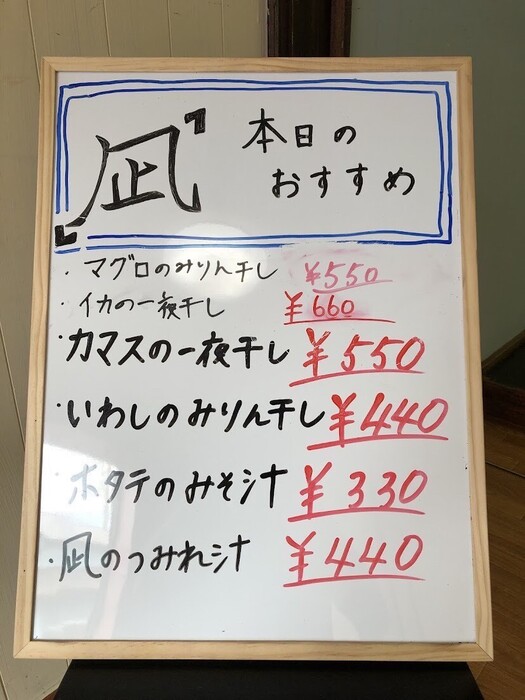 「凪」
本日の
おすすめ
・マグロのみりん干し ¥550
・イカの一夜干し ¥660
・カマスの一夜干し ¥550
・いわしのみりん干し ¥440
・ホタテのみそ汁 ¥330
・凪のつみれ汁 ¥440